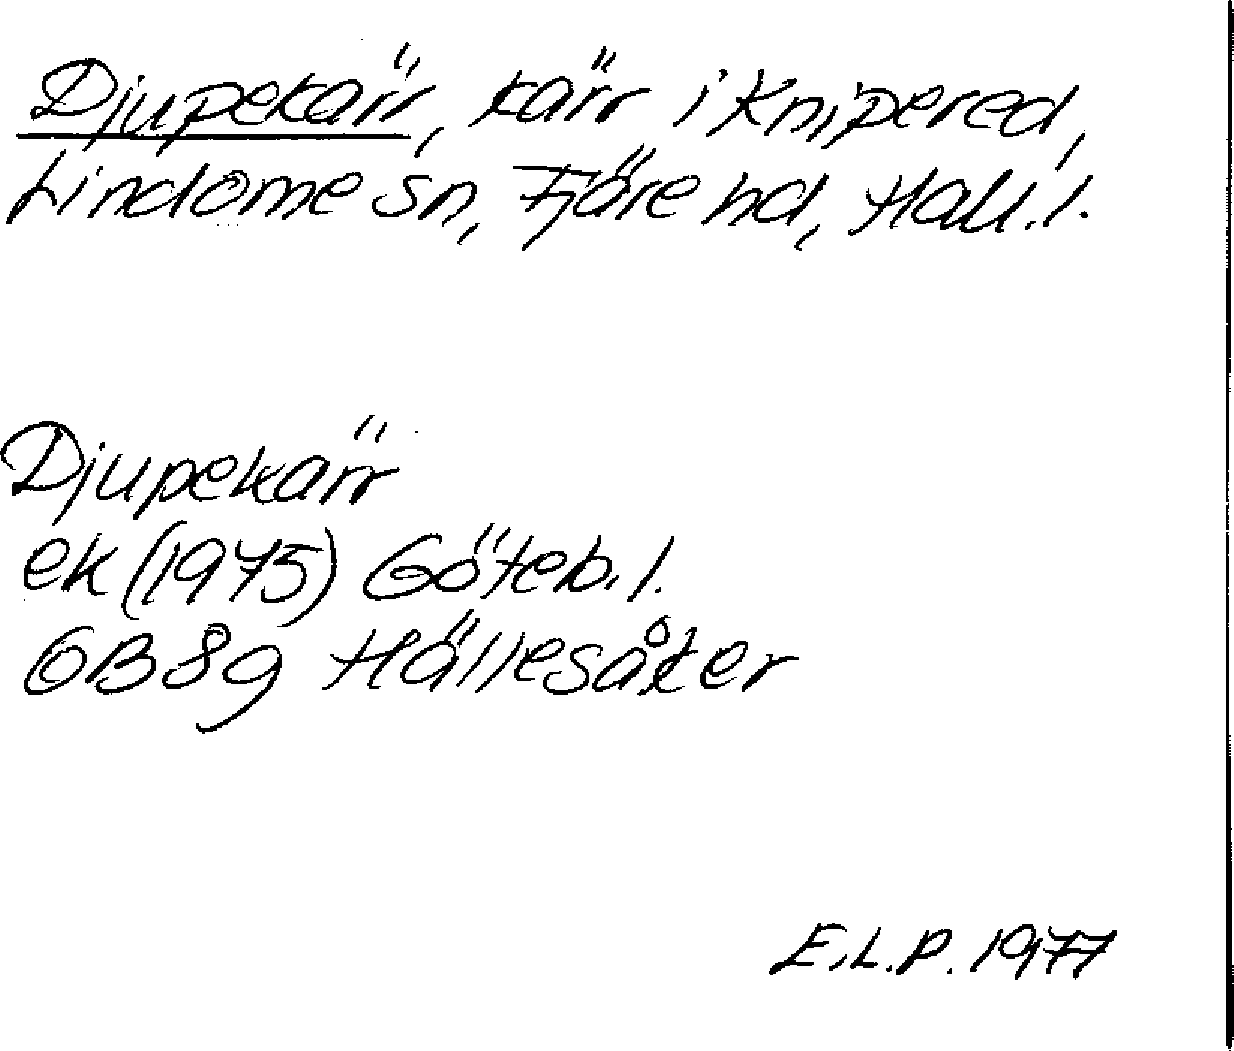 Djupekärr, kärr i Knipered,
Lindome sn, Fjäre hd, Hall.l.
Djupekärr
ek (1975) Göteb.l.
6B8g Hällesåker
E.L.P. 1977